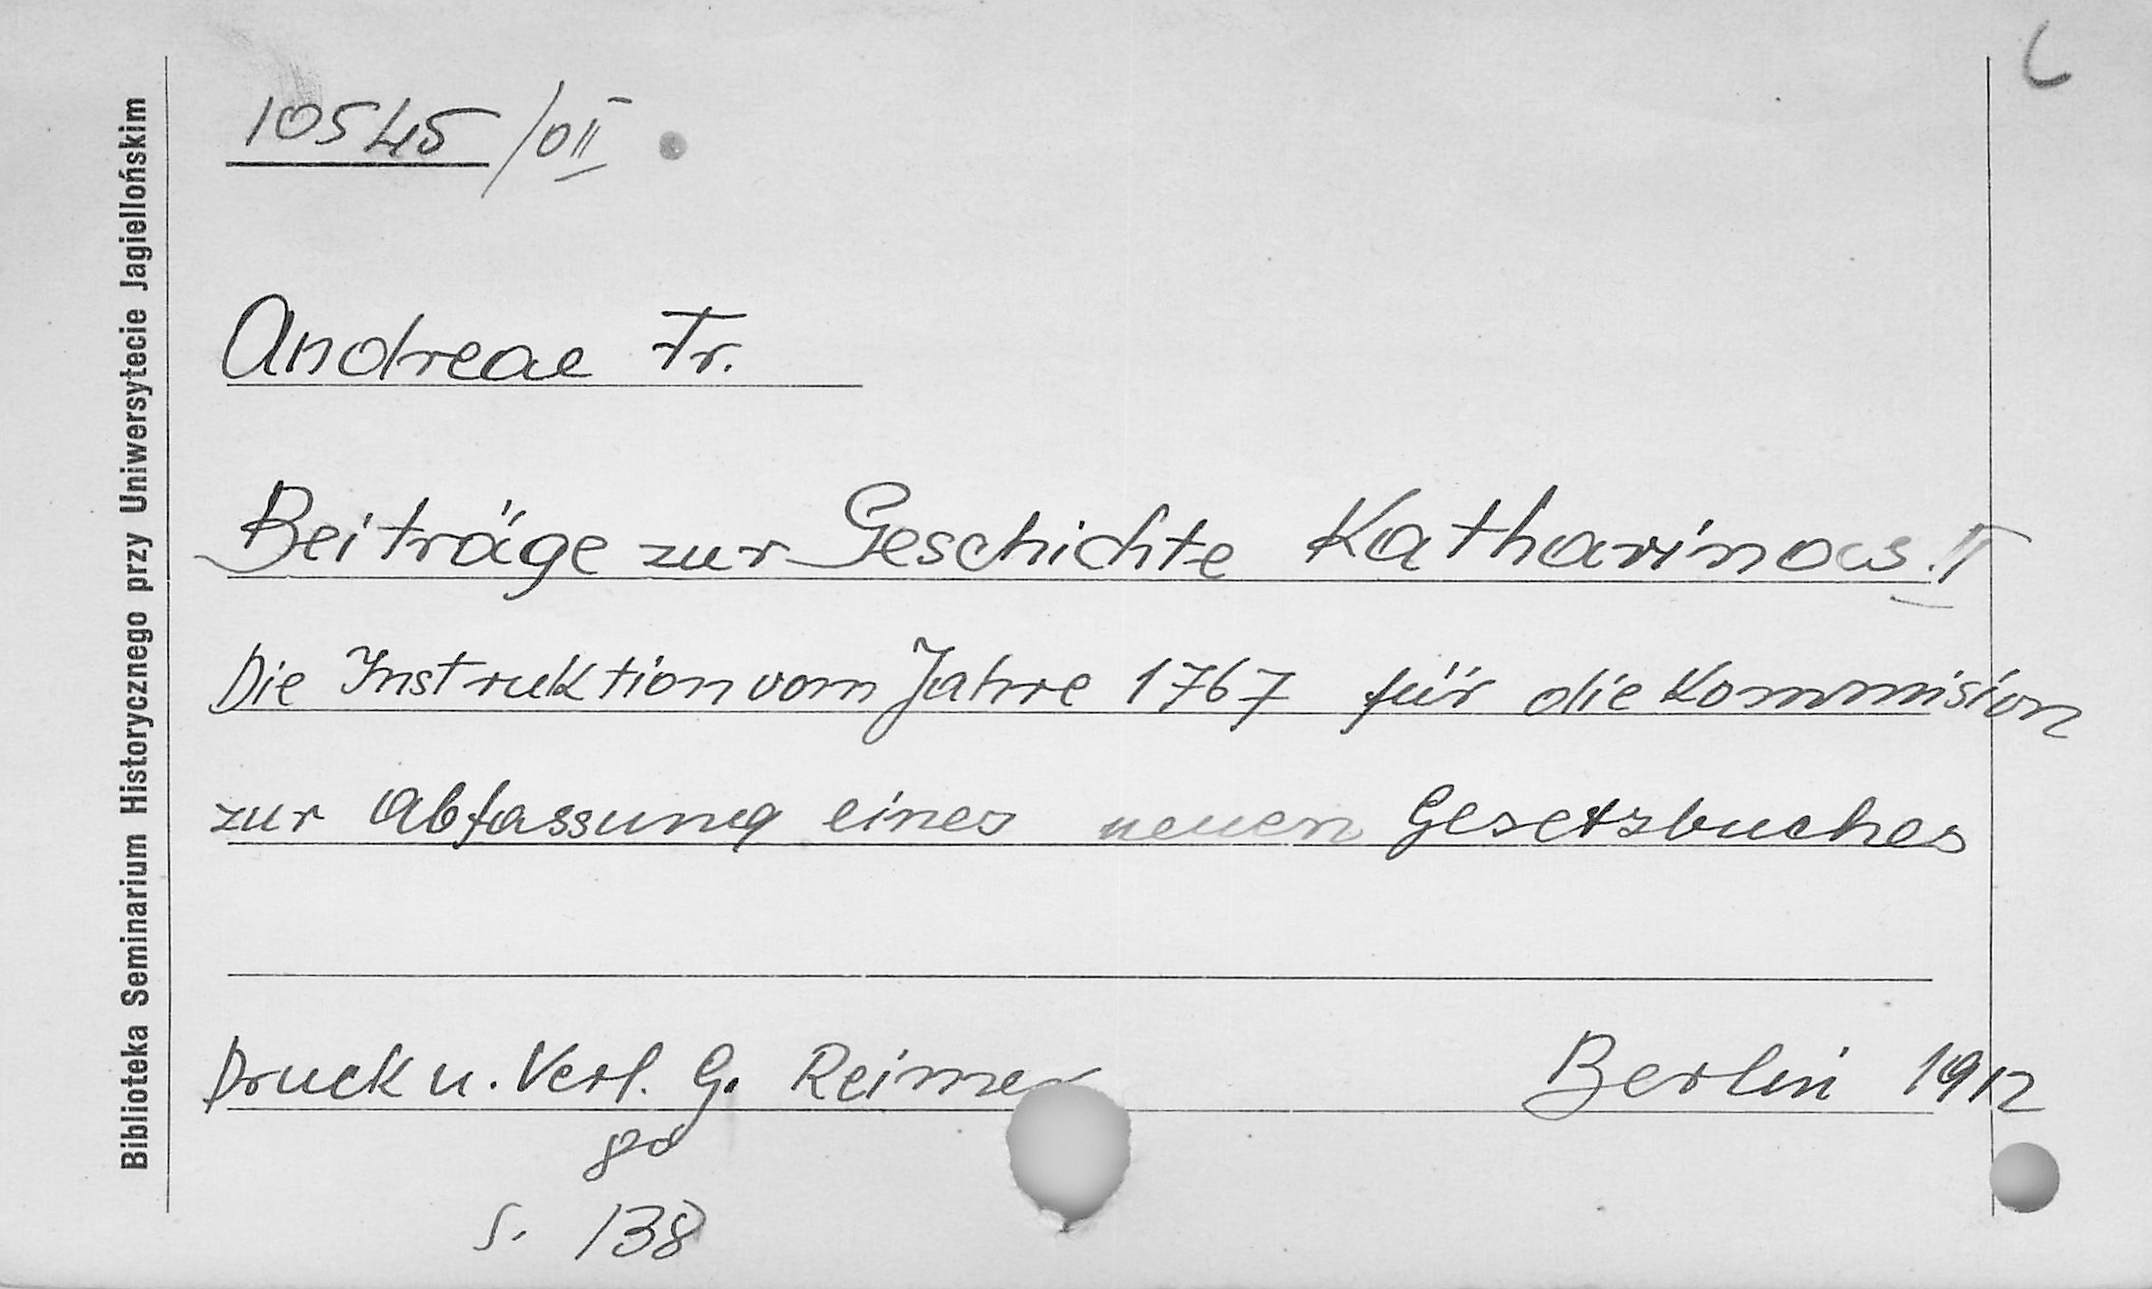 10545/0II
Andreae Fr.
Beiträge zur Geschichte Katharinas II
Die Instruktion vom Jahre 1767 für die Kommision
zur Abfassung eines neuen Gesetzbuches
Druck u. Verl. G. Reimer Berlin 1912
8o
s. 138
Biblioteka Seminarium Historycznego przy Uniwersytecie Jagiellońskim